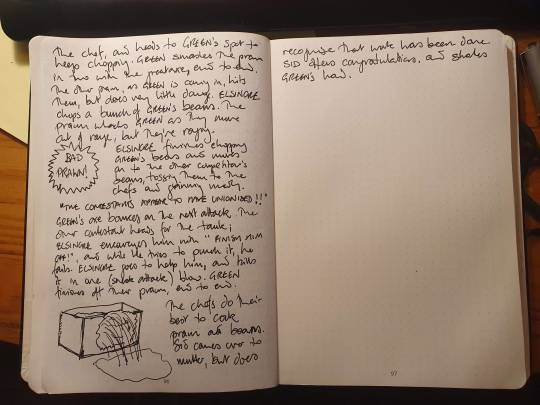 The chef, and heads to GREEN's spot to
keep chopping. GREEN smashes the prawn
in two with the greataxe, end to end.
The other prawn, as GREEN is carry in, hits
them, but does very little damg. ELSINORE
chops a bunch of GREEN's beans. The
prawn whacks GREEN as they move
out of range, but they're raging.
BAD
PRAWN!
ELSINORE finishes chopping
GREEN's beans and moves
on to the other competitor's
beans, tossing them to the
chefs and grinning madly.
"THE CONTESTANTS APPEAR TO HAVE UNIONISED!!"
GREEN's axe bounces on the next attack. The
other contestant heads for the tank;
ELSINORE encourages him with "FINISH HIM
OFF!", and while he tries to punch it, he
fails. ELSINORE goes to help him, and kills
it in one (sneak attack) blow. GREEN
finishes off their prawn, end to end.
The chefs do their
best to cook
prawn and beans.
SID comes over to
mutter, but does
96
recognise that work has been done
SID offers congratulations, and shakes
GREEN's hand.
97